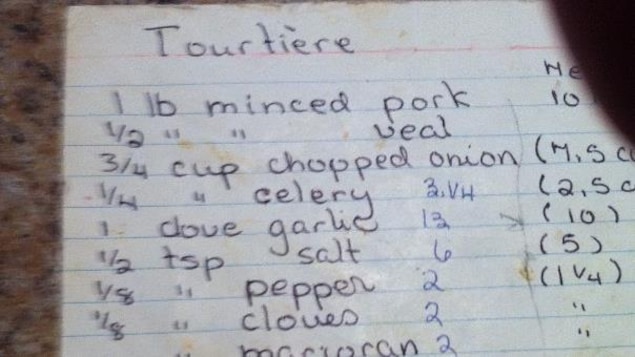 Tourtière
1 lb minced pork 10
1/2 " " veal
3/4 cup chopped onion (7,5 c
1/4 " celery 3 1/4 (2,5 c
1 clove garlic 12 (10)
1/2 tsp salt 6 (5)
1/8 " pepper 2 (1 1/4)
1/8 " cloves 2 "
" marjoran 2 "